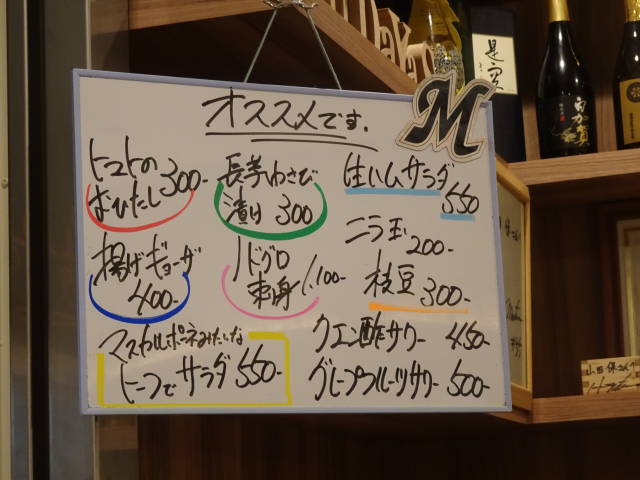 オススメです.
トマトの
おひたし 300-
長芋わさび
漬け 300
生ハムサラダ
550
揚げギョーザ
400-
ノドグロ
刺身 1,100-
ニラ玉 200-
枝豆 300-
マスカルポーネみたいな
トーフでサラダ 550-
クエン酸サワー 450-
グレープフルーツサワー 500-
M
是空